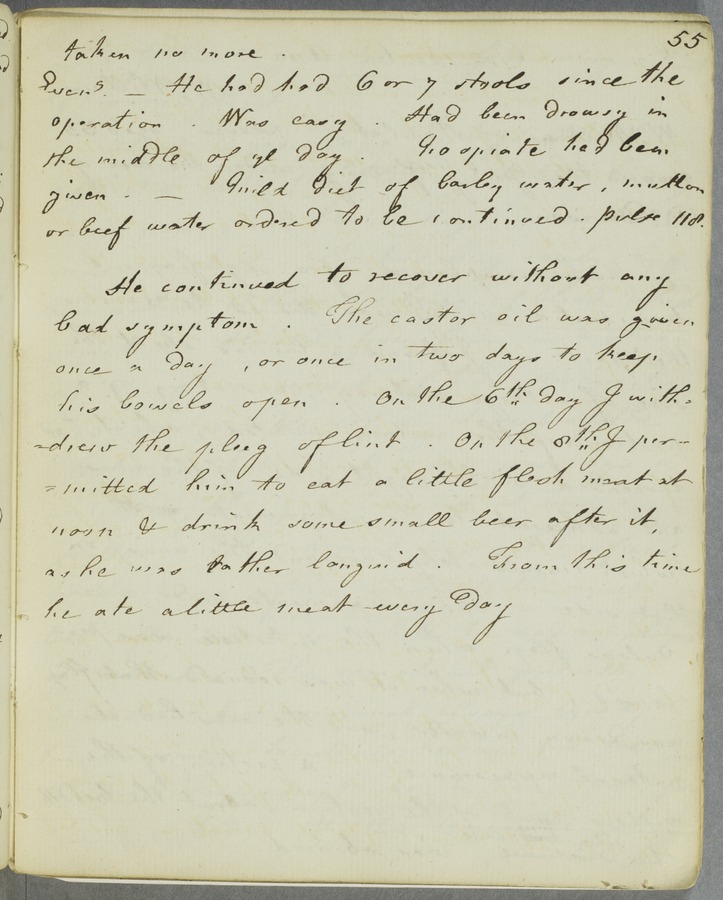 55
taken no more .
Even.g — He had had 6 or 7 stools since the
operation . Was easy . Had been drowsy in
the middle of ye day . No opiate had been
given . — Mild diet of barley water , mutton
or beef water ordered to be continued . pulse 118.
He continued to recover without any
bad symptom . The castor oil was given
once a day , or once in two days to keep
his bowels open . On the 6th day I with=
=drew the plug of lint . On the 8th I per=
=mitted him to eat a little flesh meat at
noon & drink some small beer after it,
as he was rather languid . From this time
he ate a little meat every day